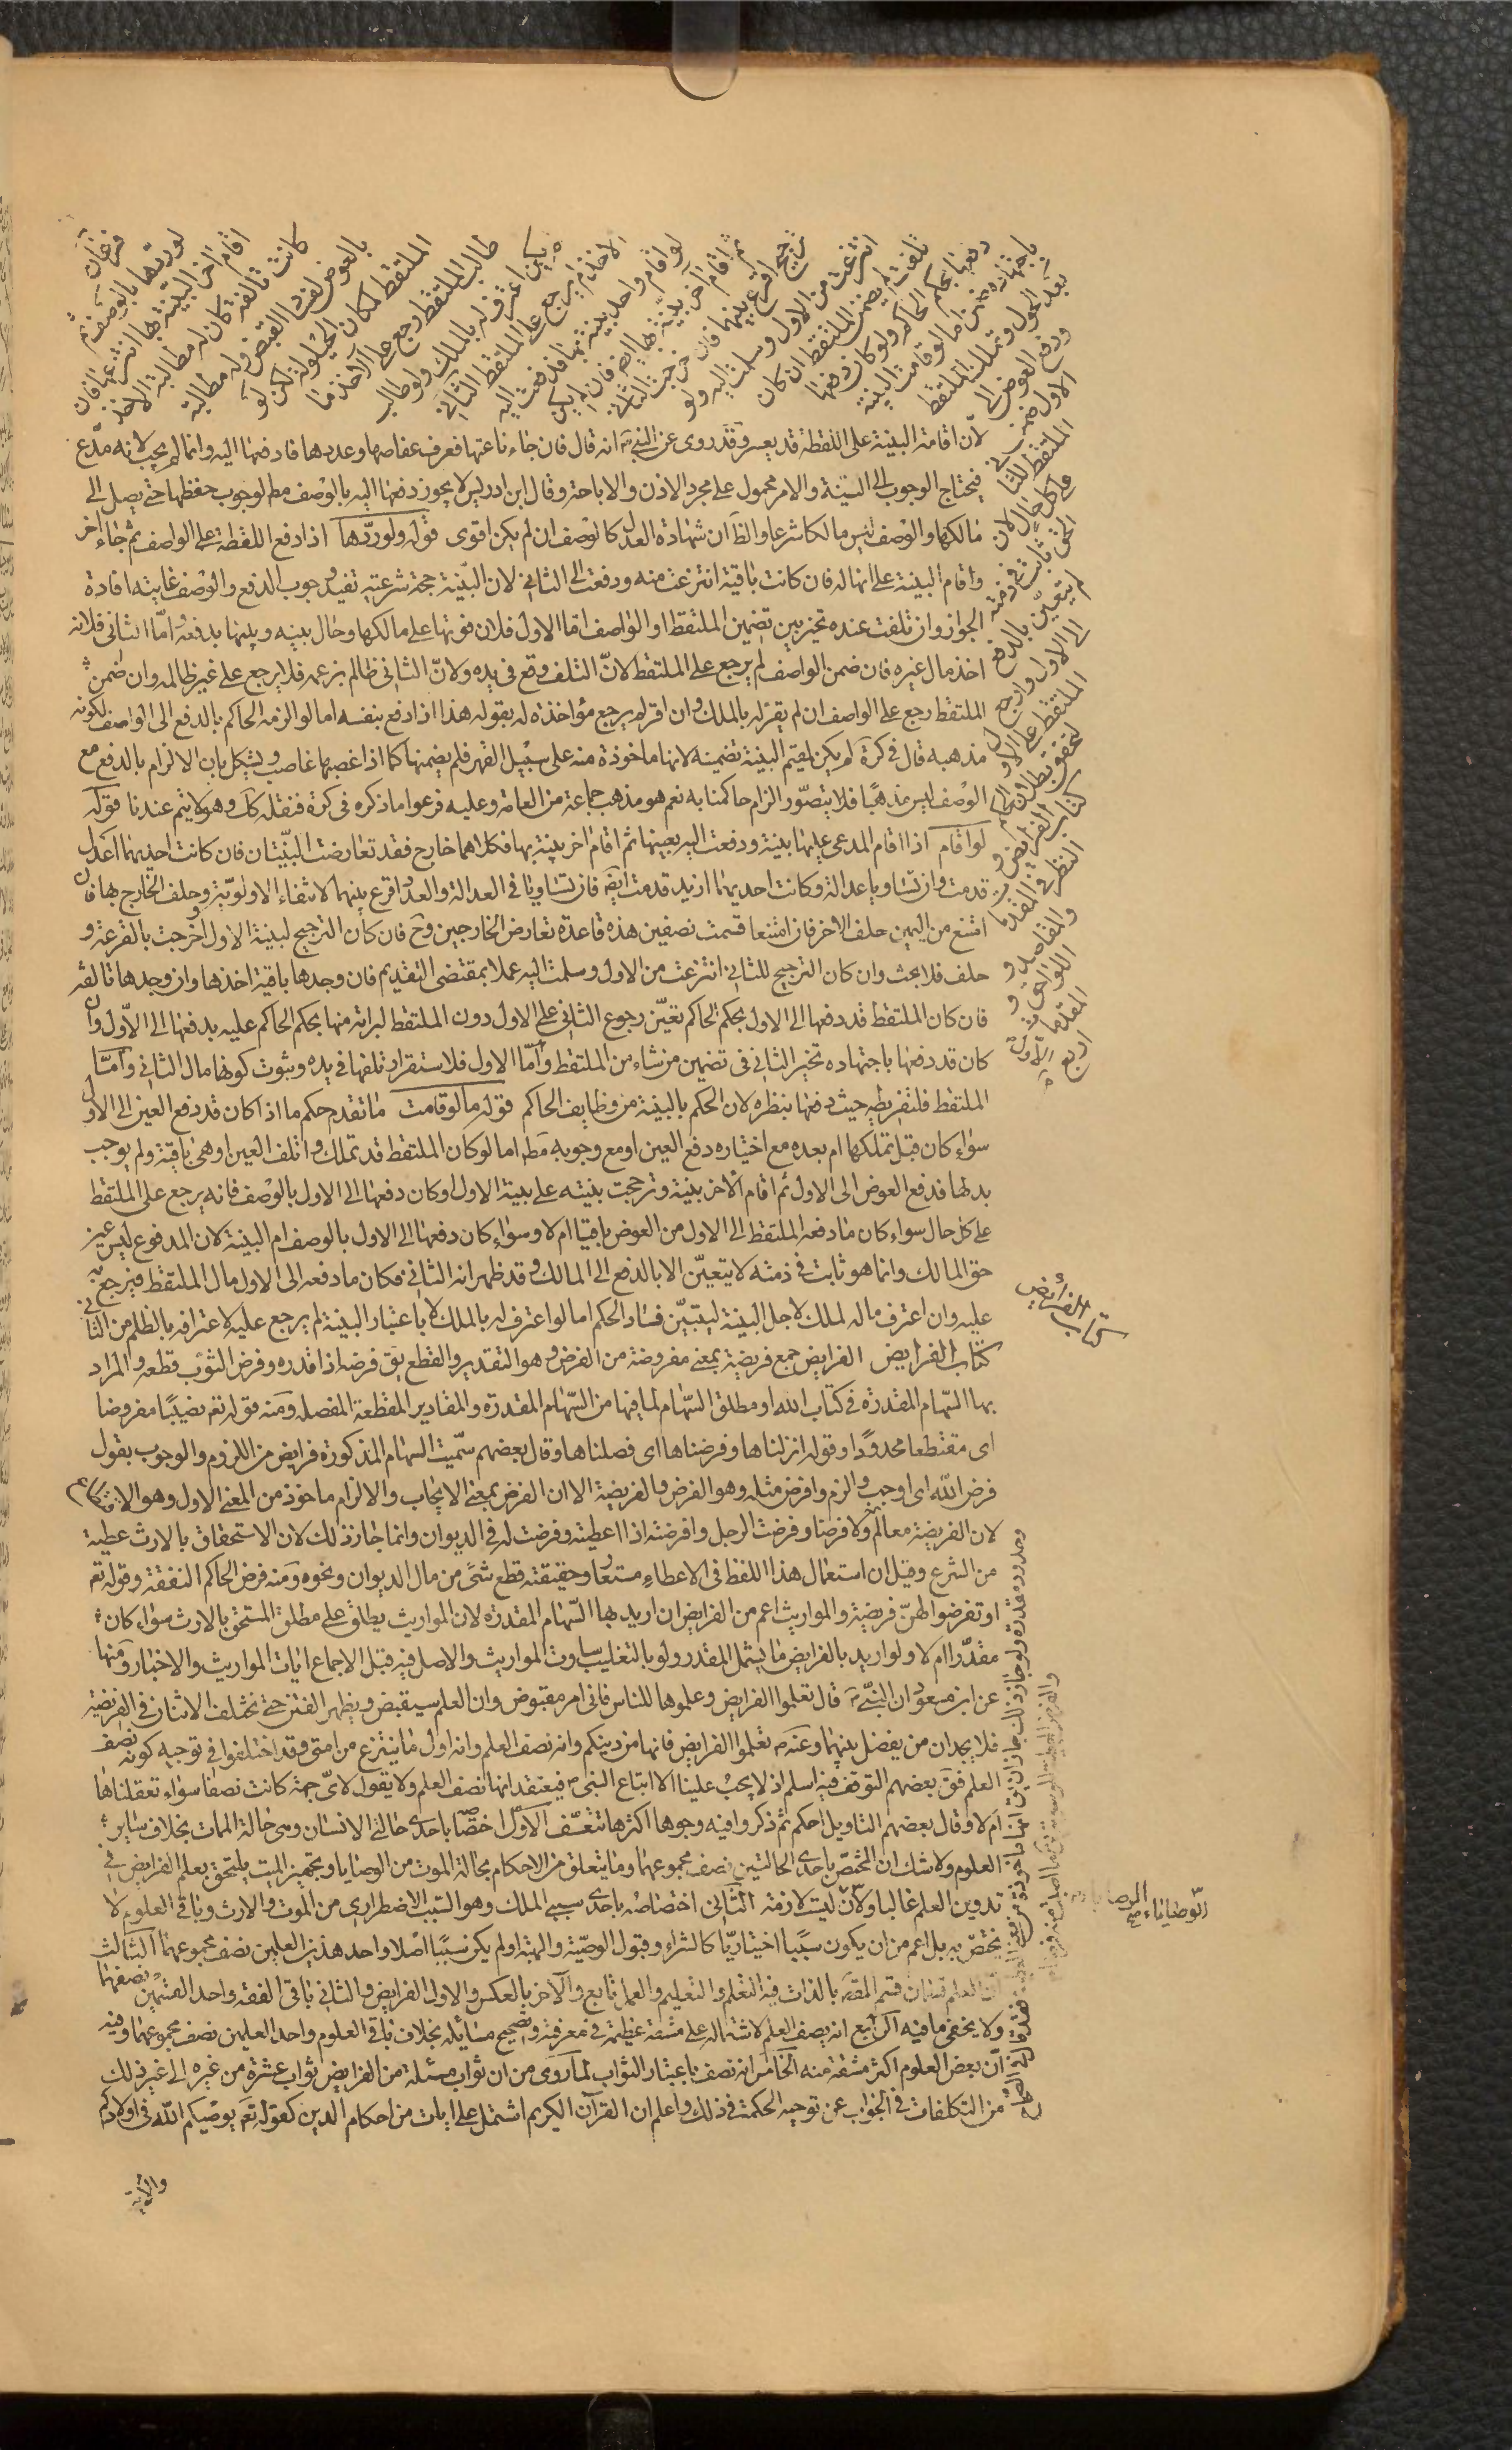 فرغان
لو ردّها بالوصف ثم
اقام اخر البينة بها انتزعها فان
كانت تالفة كان له مطالبة الاخذ
بالعوض لفساد القبض وله مطالبة
الملتقط لمكان الحيلولة لكن لو
طالب الملتقط رجع على الآخذ ما
لم يكن اعترف له بالملك ولو طالب
الاخذ لم يرجع على الملتقط الثاني
لو اقام واحد بينة بها فدفعت اليه
ثم اقام آخر بينة بها ايضا فان لم يكن
ترجيح اقرع بينهما فان خرجت للثاني
انتزعت من الاول وسلمت اليه ولو
تلفت لم يضمن الملتقط ان كان
دفعها بحكم الحاكم ولو كان دفعها
باجتهاده ضمن اما لو قامت البينة
بعد الحول وتملك الملتقط
ودفع العوض الى
الاول ضمن
الملتقط للثاني
على كل حال لان
الحق ثابت في ذمته
لم يتعين بالدفع
الى الاول ورجع
الملتقط على الاول
لتحقق بطلان الحكم
كتاب الفرايض و
النظر في المقدمات
والمقاصد و
اللواحق و
المقدمات
اربع الاولى
لان اقامة البينة على اللقطة قد يعسر وقد روى عن النبي ص انه قال فان جاء ناعتها فعرف عفاصها وعددها فادفعها اليه وانما لم يجب لانه مدّع
فيحتاج الوجوب الى البينة والامر محمول على مجرد الاذن والاباحة وقال ابن ادريس لا يجوز دفعها اليه بالوصف مط لوجوب حفظها حتى يصل الى
مالكها والوصف ليس مالكا شرعا والظ ان شهادة العدل كالوصف ان لم يكن اقوى قوله ولو ردّها اذا دفع اللقطة على الواصف ثم جاء اخر
واقام البينة على انها له فان كانت باقية انتزعت منه ودفعت الى الثاني لان البينة حجة شرعية تفيد وجوب الدفع والوصف غايته افادة
الجواز وان تلفت عنده تخير بين تضمين الملتقط او الواصف اما الاول فلان فوتها على مالكها وحال بينه وبينها بدفعه واما الثاني فلانه
اخذ مال غيره فان ضمن الواصف لم يرجع على الملتقط لانّ التلف وقع في يده ولانّ الثاني ظالم بزعمه فلا يرجع على غير ظالمه وان ضمن
الملتقط رجع على الواصف ان لم يقر له بالملك وان اقر له لم يرجع مؤاخذة له بقوله هذا اذا دفع بنفسه اما لو الزمه الحاكم بالدفع الى الواصف لكونه
مذهبه قال في كرة لم يكن لمقيم البينة تضمينه لانها ماخوذة منه على سبيل القهر فلم يضمنها كما اذا غصبها غاصب ويشكل بان الالزام بالدفع مع
الوصف ليس مذهبا فلا يتصوّر الزام حاكمنا به نعم هو مذهب جماعة من العامة وعليه فرعوا ما ذكره في كرة فنقله كك وهو لا يتم عندنا قوله
لو اقام اذا اقام المدعى عليها بينة ودفعت اليه بعينها ثم اقام اخر بينة بها فكلاهما خارج فقد تعارضت البينتان فان كانت احديهما اعدل
قدمت وان تساويا عدالة وكانت احديهما ازيد قدمت ايضا فان تساويا في العدالة والعدد اقرع بينهما لانتفاء الاولوية وحلف الخارج بها فان
امتنع من اليمين حلف الاخر فان امتنعا قسمت نصفين هذه قاعدة تعارض الخارجين وح فان كان الترجيح لبينة الاول او خرجت بالقرعة و
حلف فلا بحث وان كان الترجيح للثاني انتزعت من الاول وسلمت اليه عملا بمقتضى التقديم فان وجدها باقية اخذها وان وجدها تالفة
فان كان الملتقط قد دفعها الى الاول بحكم الحاكم تعيّن رجوع الثاني على الاول دون الملتقط لبرائته منها بحكم الحاكم عليه بدفعها الى الاول وان
كان قد دفعها باجتهاده تخير الثاني في تضمين من شاء من الملتقط وامّا الاول فلاستقرار تلفها في يده وثبوت كونها مال الثاني وامّا
الملتقط فلتفريطه حيث دفعها بنظره لان الحكم بالبينة من وظايف الحاكم قوله ما لو قامت ما تقدم حكم ما اذا كان قد دفع العين الى الاول
سواء كان قبل تملكها ام بعده مع اختياره دفع العين او مع وجوبه مط اما لو كان الملتقط قد تملك واتلف العين او هي باقية ولم يوجب
بدلها فدفع العوض الى الاول ثم اقام الاخر بينة وترجحت بينته على بينة الاول او كان دفعها الى الاول بالوصف فانه يرجع على الملتقط
على كل حال سواء كان ما دفعه الملتقط الى الاول من العوض باقيا ام لا وسواء كان دفعها الى الاول بالوصف ام البينة لان المدفوع ليس عين
حق المالك وانما هو ثابت في ذمته لا يتعيّن الا بالدفع الى المالك وقد ظهر انه الثاني فكان ما دفعه الى الاول مال الملتقط فيرجع به
عليه وان اعترف ماله لملك لاجل البينة ليتبيّن فساد الحكم اما لو اعترف له بالملك لا باعتبار البينة لم يرجع عليه لاعترافه بالظلم من الثاني
كتاب الفرايض الفرايض جمع فريضة بمعنى مفروضة من الفرض وهو التقدير والقطع يق فرضه اذا قدره وفرض الثوب قطعه والمراد
بها السهام المقدرة في كتاب الله او مطلق السهام لما فيها من السهام المقدرة والمقادير المقطعة المفصله ومنه قوله تع نصيبًا مفروضا
اى مقتطعا محدودًا وقوله انزلناها وفرضناها اى فصلناها وقال بعضهم سمّيت السهام المذكورة فرايض من اللزوم والوجوب يقول
فرض الله اى اوجب والزم وافرض مثله وهو الفرض والفريضة الا ان الفرض بمعنى الايجاب والالزام ماخوذ من المعنى الاول وهو الاقتطاع
لان الفريضة معالم وفرضا وفرضت الرجل وافرضته اذا اعطيته وفرضت له في الديوان وانما جاز ذلك لان الاستحقاق بالارث عطية
من الشرع وقيل ان استعمال هذا اللفظ في الاعطاء مستعار وحقيقته قطع شئ من مال الديوان ونحوه ومنه فرض الحاكم النفقة وقوله تع
او تفرضوا لهنّ فريضة والمواريث اعم من الفرايض ان اريد بها السهام المقدره لان المواريث يطلق على مطلق المستحق بالارث سواء كان
مقدّرا ام لا ولو اريد بالفرايض ما يشمل المقدر ولو بالتغليب ساوت المواريث والاصل فيه قبل الاجماع ايات المواريث والاخبار ومنها
عن ابن مسعود ان النبي ص قال تعلموا الفرايض وعلموها للناس فانى امرء مقبوض وان العلم سيقبض ويظهر الفتن حتى تختلف الاثنان في الفريضة
فلا يجدان من يفصل بينهما وعنه ص تعلموا الفرايض فانها من دينكم وانه نصف العلم وانه اول ما ينتزع من امتى وقد اختلفوا في توجيه كونه نصف
العلم فق بعضهم التوقف فيه اسلم اذ لا يجب علينا الا اتباع النبى ص فيعتقد انها نصف العلم ولا يقول لاىّ جهة كانت نصفا سواء تعقلناها
ام لا وقال بعضهم التاويل احكم ثم ذكروا فيه وجوها اكثرها تعسّف الاول اختصاصها باحدى حالتي الانسان وهى حالة الممات بخلاف سائر
العلوم ولا شك ان المختصّ باحدى الحالتين نصف مجموعهما وما يتعلق من الاحكام بحالة الموت من الوصايا وتجهيز الميت يلتحق بعلم الفرايض في
تدوين العلم غالبا ولانّ ليت لازمة الثاني اختصاصه باحدى سببي الملك وهو السبب الاضطرارى من الموت والارث وباقى العلوم لا
يختصّ به بل اعم من ان يكون سببًا اختياريّا كالشراء وقبول الوصيّة والهبة او لم يكن سببًا اصلا واحد هذين العلمين نصف مجموعهما الثالث
ان العلم قسمان قسم المقصود بالذات فيه التعلم والتعليم والعمل تابع والآخر بالعكس والاول الفرايض والثاني باقى الفقه واحد القسمين نصفهما
ولا يخفى ما فيه الرابع انه نصف العلم لاشتماله على مشقة عظيمة في معرفته وتصحيح مسائله بخلاف باقى العلوم واحد العلمين نصف مجموعهما وفيه
انّ بعض العلوم اكثر مشقة منه الخامس انه نصف باعتبار الثواب لما روى من ان ثواب مسئلة من الفرايض ثواب عشرة من غيره الى غير ذلك
من التكلفات في الجواب عن توجيه الحكمة في ذلك واعلم ان القرآن الكريم اشتمل على ايات من احكام الدين كقوله تع يوصيكم الله في اولادكم
كتاب الفرايض